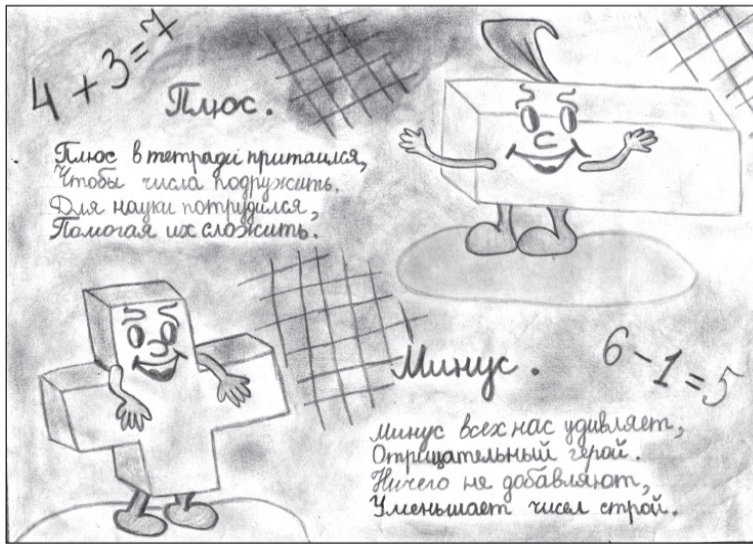 4 + 3 = 7
Плюс.
Плюс в тетради притаился,
Чтобы числа подружить.
Для науки потрудился,
Помогая их сложить.
Минус.
6 - 1 = 5
Минус всех нас удивляет,
Отрицательный герой.
Ничего не добавляют,
Уменьшает чисел строй.